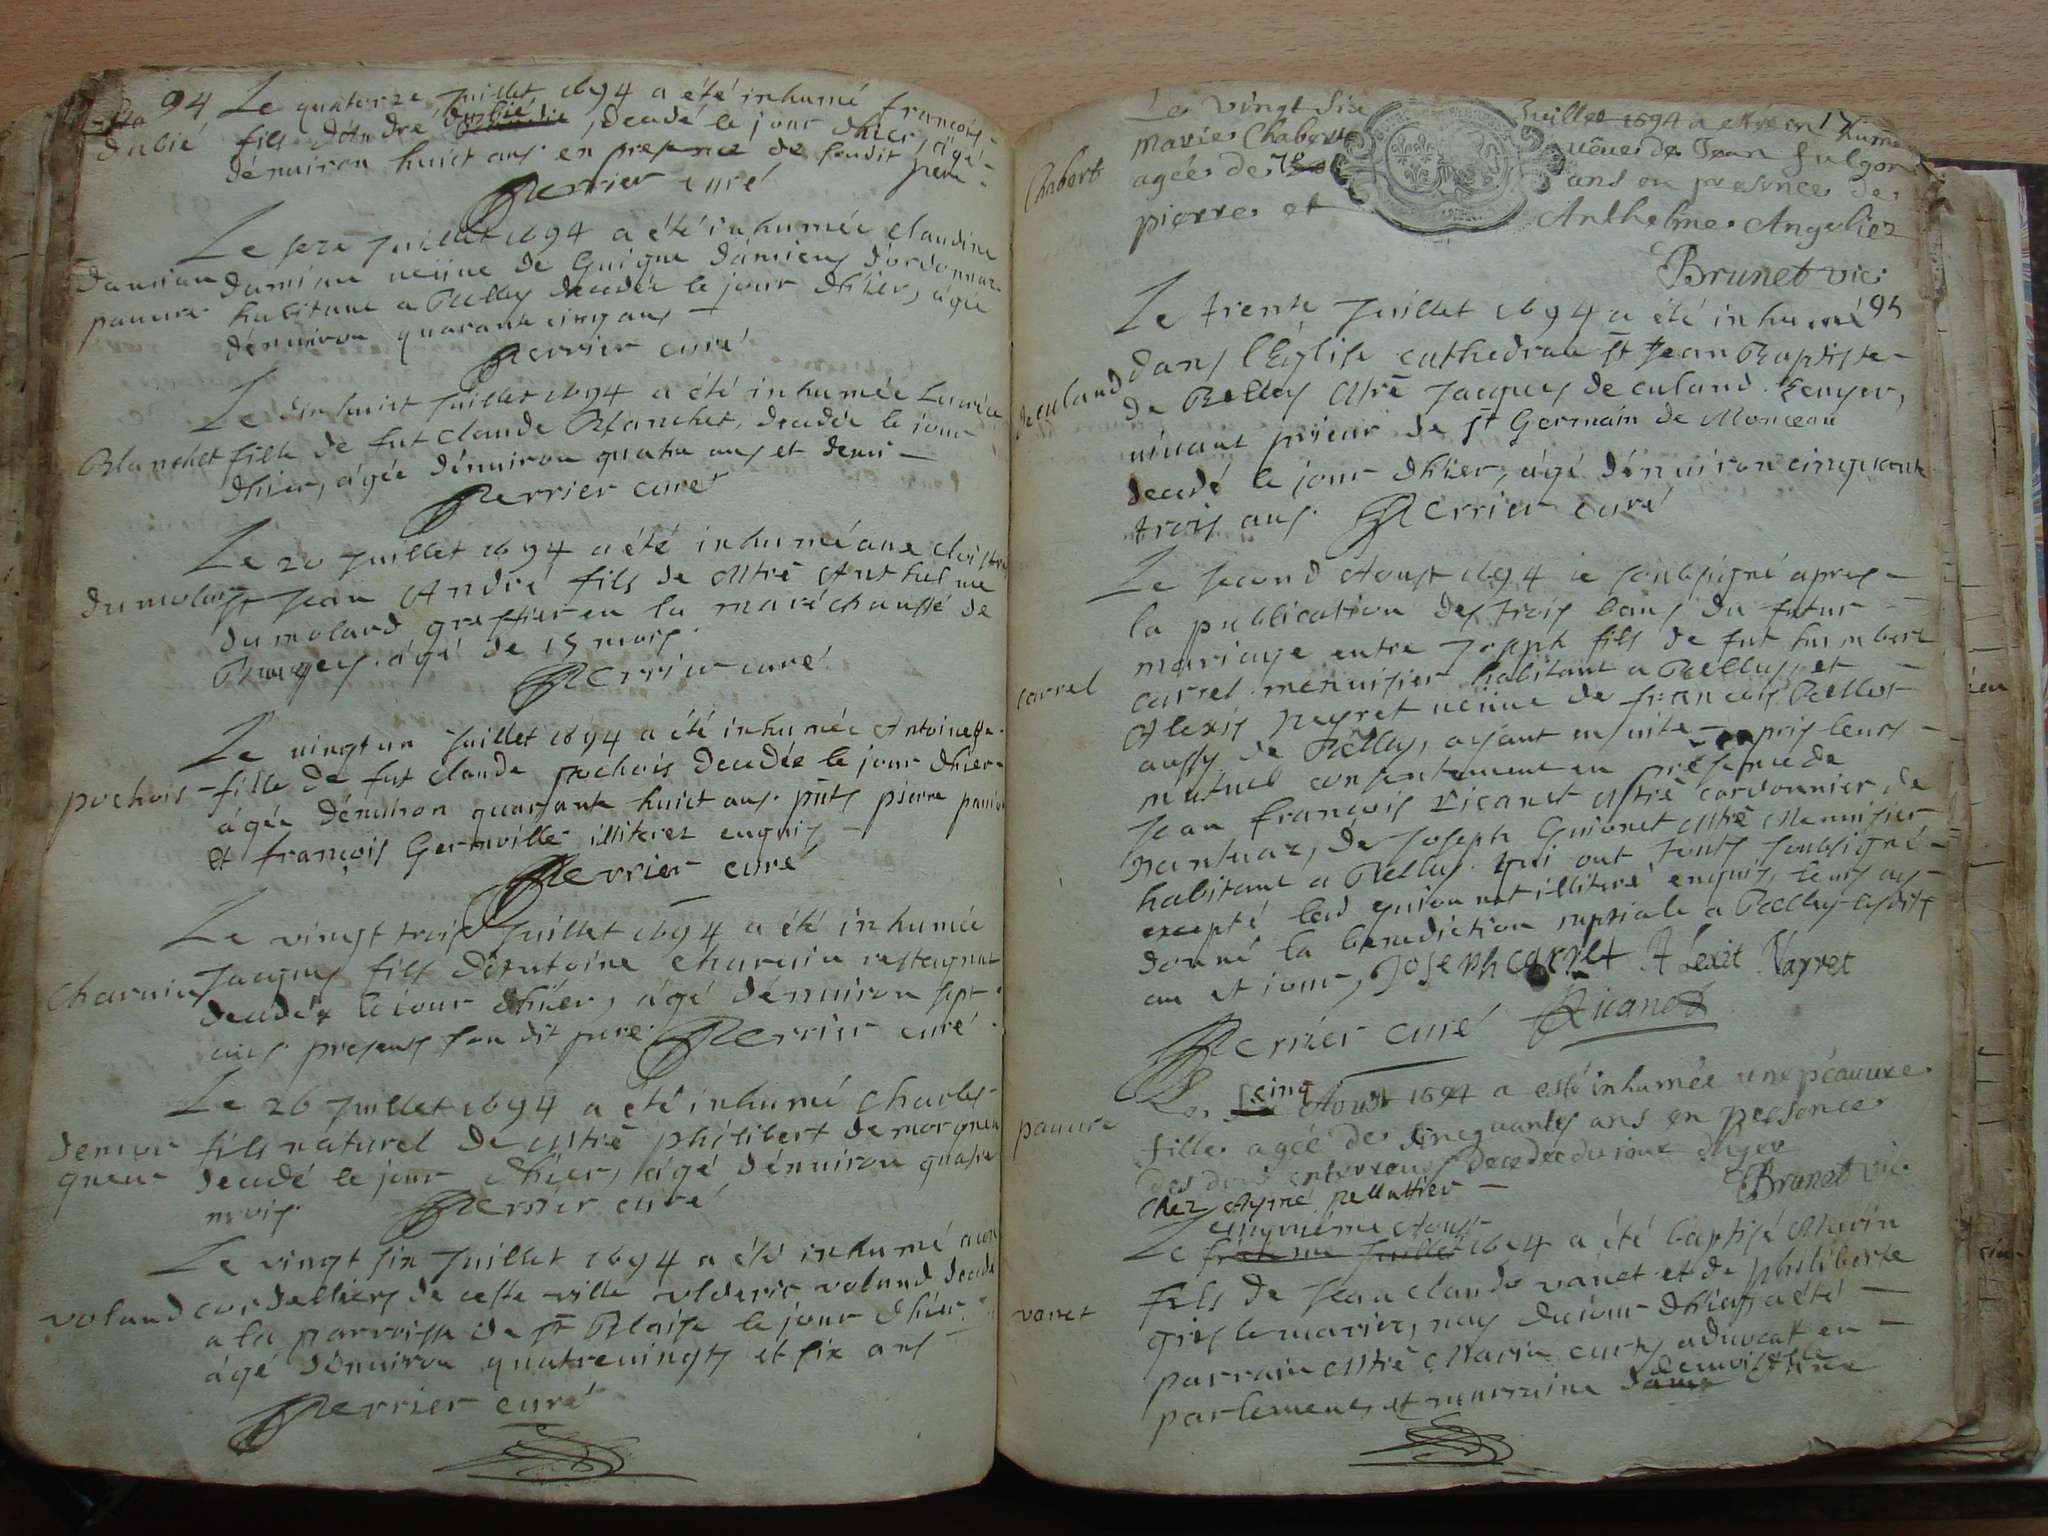 94 Le quatorze Juillet 1694 a été inhumé françois
dubié fils d'André dubié, decedé le jour d'hier, âgé
d'enuiron huict ans en presence de soudit pere
Perrier curé
Le seze Juillet 1694 a été inhumée claudine
damian damian ueüue de Guigue damien d'ordonnaz
pauure habitant a Belley decedée le jour d'hier, âgée
d'enuiron quarante cinq ans
Perrier curé
Le dix huict Juillet 1694 a été inhumée
Blanchet fille de fut claude Blanchet, decedée le jour
d'hier, âgée d'enuiron quatre ans et demi
Perrier curé
Le 20 Juillet 1694 a été inhumé aux cloistre
dumolard st Jean André fils de Mtrē Anthelme
dumolard greffier en la maréchaussé de
Bugey âgé de 15 mois
Perrier curé
Le uingt un Juillet 1694 a été inhumée Antoinette
pochois fille de fut claude pochois decedée le jour d'hier
âgée d'enuiron quarante huict ans pñts pierre
et françois Gerauville illiterez enquis
Perrier curé
Le vingt trois Juillet 1694 a été inhumée
charuin Jacques fils d'Antoine charuin
decedé le iour d'hier, âgé d'enuiron sept
ans presens son dit pere. Perrier curé
Le 26 Juillet 1694 a été inhumé charles
demor fils náturel de Mtrē philibert de morgneu
gneu decedé le jour d'hier, âgé d'enuiron quatre
mois. Perrier curé
Le vingt six Juillet 1694 a été inhumé aux
voland cordelliers de ceste ville vlderic voland decedé
a la parroisse de st Blaise le jour d'hier
âgé d'enuiron quatreuingts et six ans
Perrier curé
Le vingt six Juillet 1694 a esté inhumé 17
Chabert Marie Chabert ueüue de Jean fulgon
agée de ans en presence de
pierre et Anthelme Angeliez
Brunet vic.
Le trente Juillet 1694 a été inhumé 95
dans l'Eglise cathedrale st Jean Baptiste
de culand de Belley Mtrē Jacques de culand Ecuyer,
uiuant prieur de st Germain de Monceau
decedé le jour d'hier, âgé d'enuiron cinquante
trois ans. Perrier curé
Le second Aoust 1694 ie soubsigné apres
la publication des trois bans du futur
mariage entre Joseph fils de fut humbert
carrel carrel menuisier habitant a Belley, et
Alexis peyret ueüue de françois Bellot
aussy de Belley, ayant ensuite pris leurs
mutuel consentement en presence de
Jean françois Ricanet Mtrē cordonnier de
nantuaz, de Joseph Guionet Mtrē Menuisier
habitant a Belley qui ont touts soubsigné
excepté led guionnet illiteré enquis, leurs ay
donné la benediction nuptiale a Belley lesdits
an et iour, Joseph carrel Alexit Nayret
Perrier curé Ricanet
Le cinq Aoust 1694 a esté inhumée une pauure
pauure fille agée de cinquantes ans en presence
des dits enterreurs decedee du iour d'hyer
chez Aymé pellattier Brunet vic.
cinquième Aoust
Le 1694 a été baptisé Marin
vanet fils de Jean claude vanet et de philiberte
gros le marier, nay du iour d'hier, a été
parrain Mtrē Marin curty aduocat en
parlement et marraine demoiselle